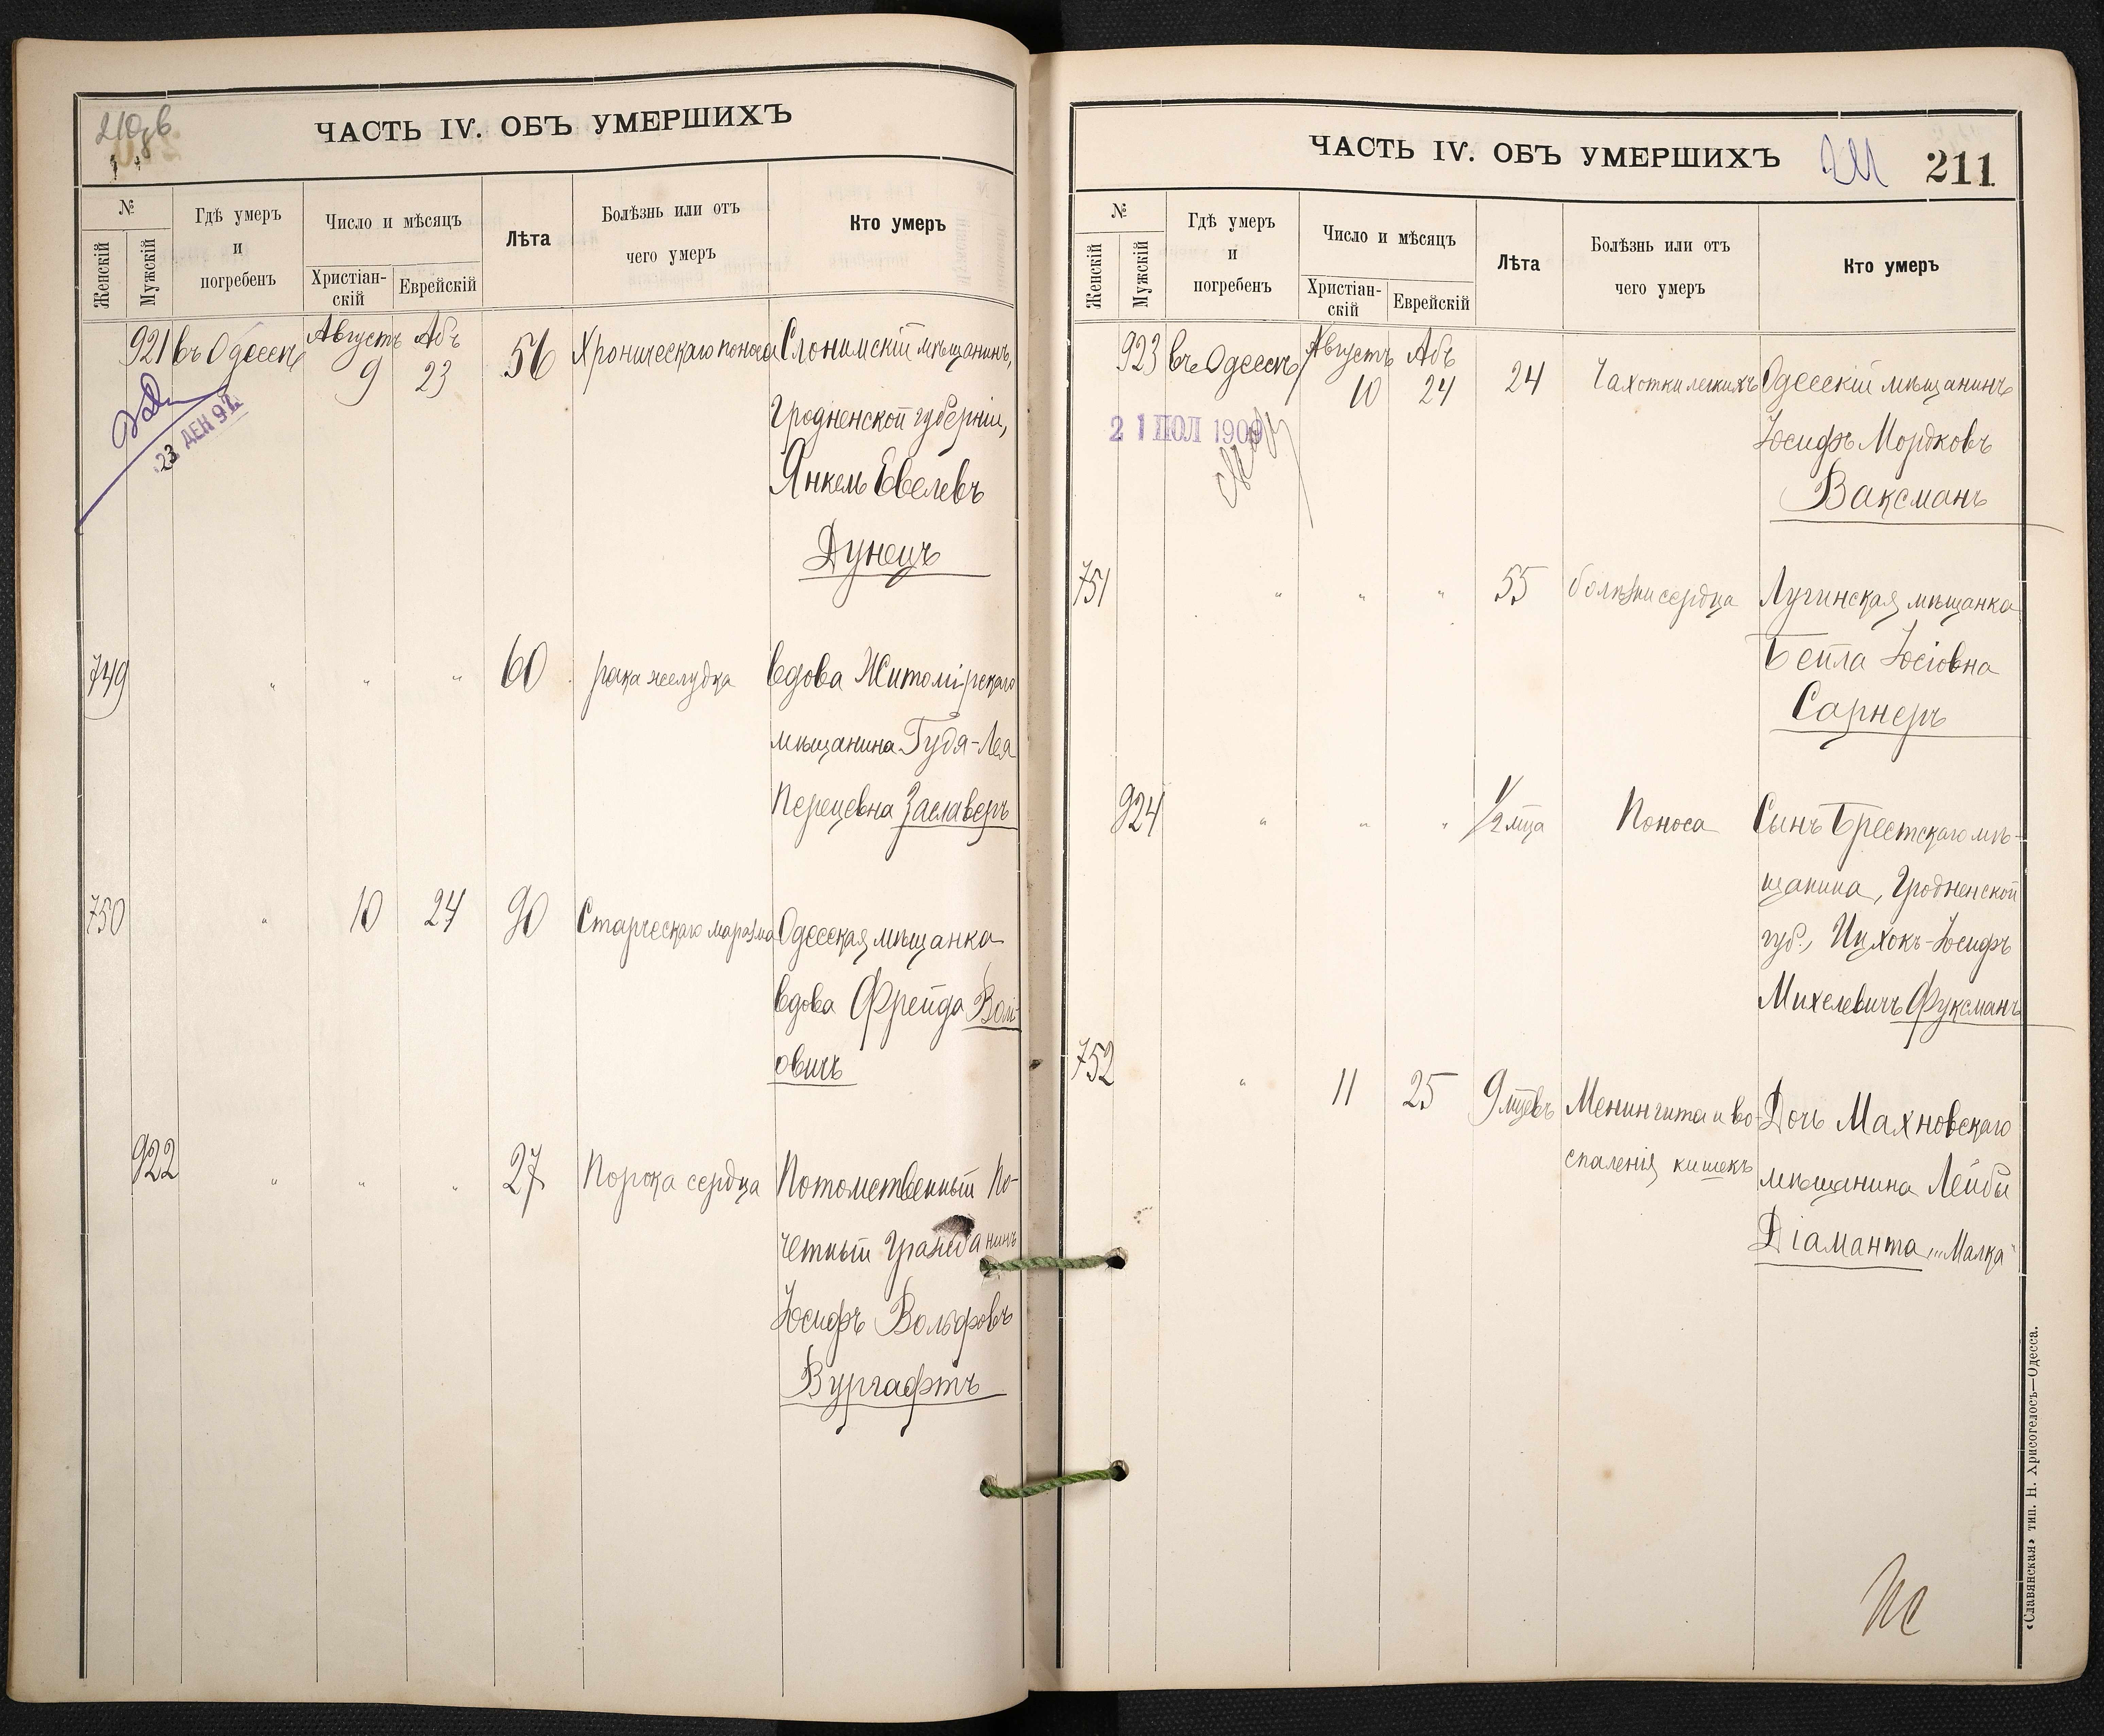 210 об
ЧАСТЬ IV. ОБЪ УМЕРШИХЪ
№
Женскій
Мужскій
Гдѣ умеръ
и
погребенъ
Число и мѣсяцъ
Христіан-
скій
Еврейскій
Лѣта
Болѣзнь или отъ
чего умеръ
Кто умеръ
921 въ Одессѣ Августъ 9 Абъ 23 56 Хроническаго поноса Слонимскій мѣщанинъ,
23 ДЕК 97
Гродненской губерніи,
Янкель Евелевъ
Дунецъ
749 " " " 60 рака желудка вдова Житомірскаго
мѣщанина Гудя-Лея
Перецевна Заславеръ
750 " 10 24 90 Старческаго маразма Одесская мѣщанка
вдова Фрейда Вой-
овичъ
922 " " " 27 Порока сердца Потомственный По-
четный Гражданинъ
Іосифъ Вольфовъ
Вургафтъ
ЧАСТЬ IV. ОБЪ УМЕРШИХЪ
211 211
№
Женскій
Мужскій
Гдѣ умеръ
и
погребенъ
Число и мѣсяцъ
Христіан-
скій
Еврейскій
Лѣта
Болѣзнь или отъ
чего умеръ
Кто умеръ
923 въ Одессѣ Августъ 10 Абъ 24 24 Чахотки легкихъ Одесскій мѣщанинъ
21 ІЮЛ 1909
Іосифъ Мордковъ
Ваксманъ
751 " " " 55 болѣзни сердца Лугинская мѣщанка
Бейла Іосіовна
Сарнеръ
924 " " " 1/2 мца Поноса Сынъ Брестскаго мѣ-
щанина, Гродненской
губ., Ицхокъ-Іосифъ
Михелевичъ Фуксманъ
752 " 11 25 9 мцевъ Менингита и во- Дочь Махновскаго
спаленія кишекъ мѣщанина Лейбы
Діаманта, „Малка"
«Славянская» тип. Н. Хрисогелосъ—Одесса.